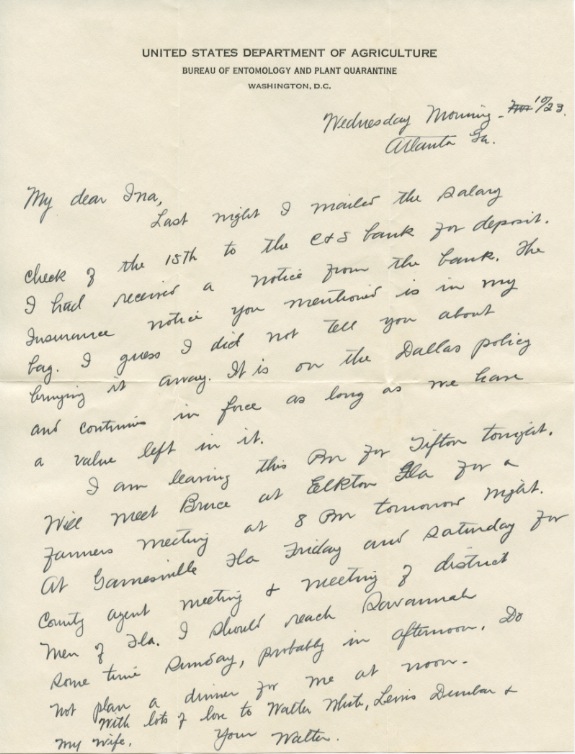 UNITED STATES DEPARTMENT OF AGRICULTURE
BUREAU OF ENTOMOLOGY AND PLANT QUARANTINE
WASHINGTON, D.C.
Wednesday Morning - 10/23.
Atlanta Ga.
My dear Ina,
Last night I mailed the salary
check of the 15th to the C&S bank for deposit.
I had received a notice from the bank. The
Insurance notice you mentioned is in my
bag. I guess I did not tell you about
bringing it away. It is on the Dallas policy
and continues in force as long as we have
a value left in it.
I am leaving this Pm for Tifton tonight.
Will meet Bruce at Elkton Fla for a
farmers meeting at 8 Pm tomorrow night.
At Gainesville Fla Friday and Saturday for
County agent meeting & meeting of district
men of Fla. I should reach Savannah
some time Sunday, probably in afternoon. Do
not plan a dinner for me at noon.
With lots of love to Walter White, Lewis Dunbar &
my wife. Your Walter.